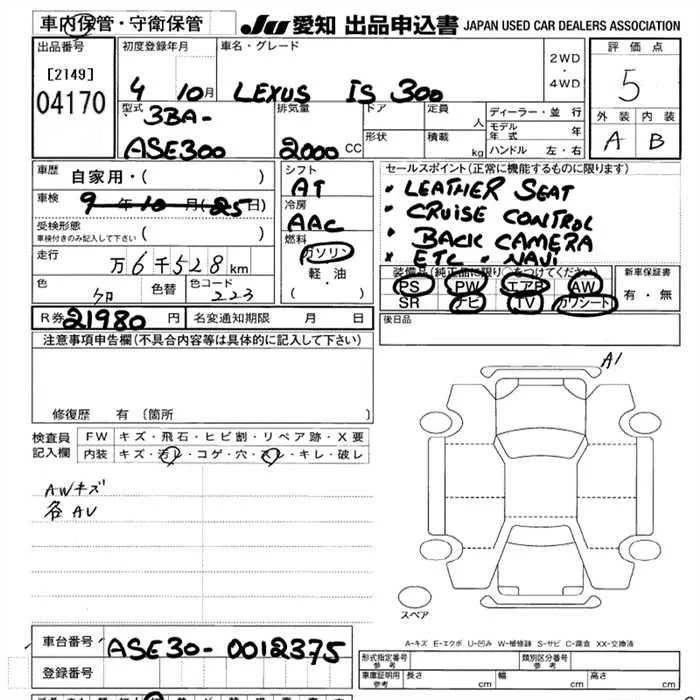 車内保管・守衛保管
JU 愛知 出品申込書 JAPAN USED CAR DEALERS ASSOCIATION
出品番号 初度登録年月 車名・グレード 2WD・4WD 評価点
[2149]
04170 4 10月 LEXUS IS 300 5
型式 排気量 ドア 定員 人 ディーラー・並行 外装 内装
3BA-
ASE300 2000 CC 形状 積載 kg モデル年式 年 A B
ハンドル 左・右
車歴 自家用・( ) シフト AT セールスポイント(正常に機能するものに限ります)
車検 9年10月(25日) 冷房 AAC ・LEATHER SEAT
受検形態 ( ) ・CRUISE CONTROL
車検付きのみ記入して下さい 燃料 ・BACK CAMERA
走行 万6千528km ガソリン ・ETC・NAVi
軽・油
( )
色 クロ 色替 色コード 223
装備品(純正品に限り○をつけてください) 新車保証書
PS PW エアB AW 有・無
SR ナビ TV カワシート
R券 21980円 名変通知期限 月 日 後日品
注意事項申告欄(不具合内容等は具体的に記入して下さい)
修復歴 有〔箇所 〕
A1
検査員 FW キズ・飛石・ヒビ割・リペア跡・X要
記入欄 内装 キズ・汚レ・コゲ・穴・スレ・キレ・破レ
AWキズ
各AU
スペア
A-キズ E-エクボ U-凹み W-補修跡 S-サビ C-腐食 XX-交換済
車台番号 ASE30-0012375
登録番号
形式指定番号 参考 類別区分番号 参考
車庫証明用 参考 長さ cm 幅 cm 高さ cm